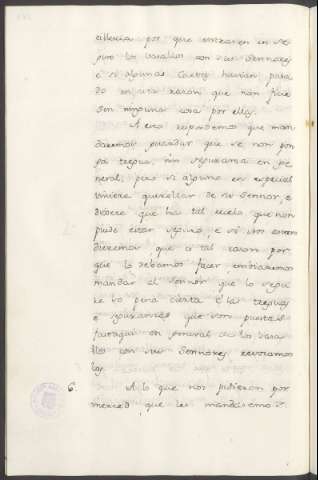 guro los vasallos con sus Sennores
e si algunas Cartas havian pasa
do en esta razon que non ficie
sen ninguna cosa por ellas.
A esto respondemos que man
daremos guardar que se non pon
ga tregua, nin seguranza en ge
neral; pero si alguno en especial
viniere querellar de su Sennor, e
dixere que ha tal recelo que non
puede estar seguro, e si nos enten
dieremos que es tal razon por
que lo debamos facer, embiaremos
mandar al Sennor que lo segu
re so pena cierta e las treguas
e seguranzas que son puestas
fastaqui en general de los vasa
llos con sus Sennores revocamos
las.
6. A lo que nos pidieron por
merced, que les mandasemos